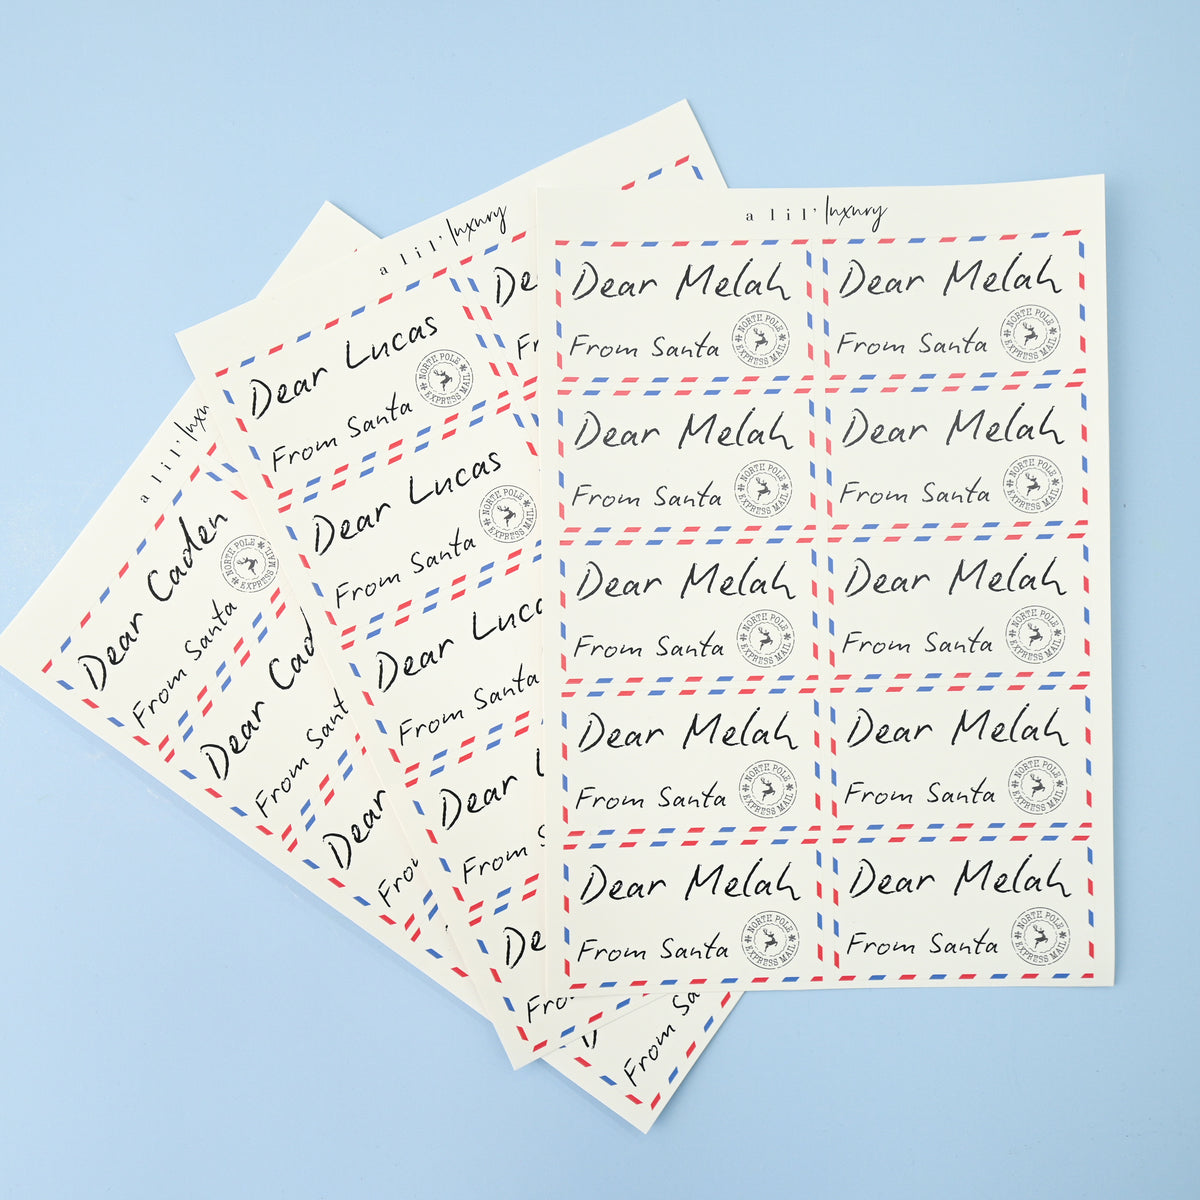 a lil' luxury
Dear Melah
From Santa
NORTH POLE
EXPRESS MAIL
Dear Melah
From Santa
NORTH POLE
EXPRESS MAIL
Dear Melah
From Santa
NORTH POLE
EXPRESS MAIL
Dear Melah
From Santa
NORTH POLE
EXPRESS MAIL
Dear Melah
From Santa
NORTH POLE
EXPRESS MAIL
Dear Melah
From Santa
NORTH POLE
EXPRESS MAIL
Dear Melah
From Santa
NORTH POLE
EXPRESS MAIL
Dear Melah
From Santa
NORTH POLE
EXPRESS MAIL
Dear Melah
From Santa
NORTH POLE
EXPRESS MAIL
Dear Melah
From Santa
NORTH POLE
EXPRESS MAIL
a lil' luxury
Dear Lucas
From Santa
NORTH POLE
EXPRESS MAIL
Dear Lucas
From Santa
NORTH POLE
EXPRESS MAIL
Dear Luc
From Santa
Dear
From S
De
Fro
De
F
a lil' lux
Dear Caden
From Santa
NORTH POLE
EXPRESS MAIL
Dear Cad
From Sant
Dear
Fro
From Sa